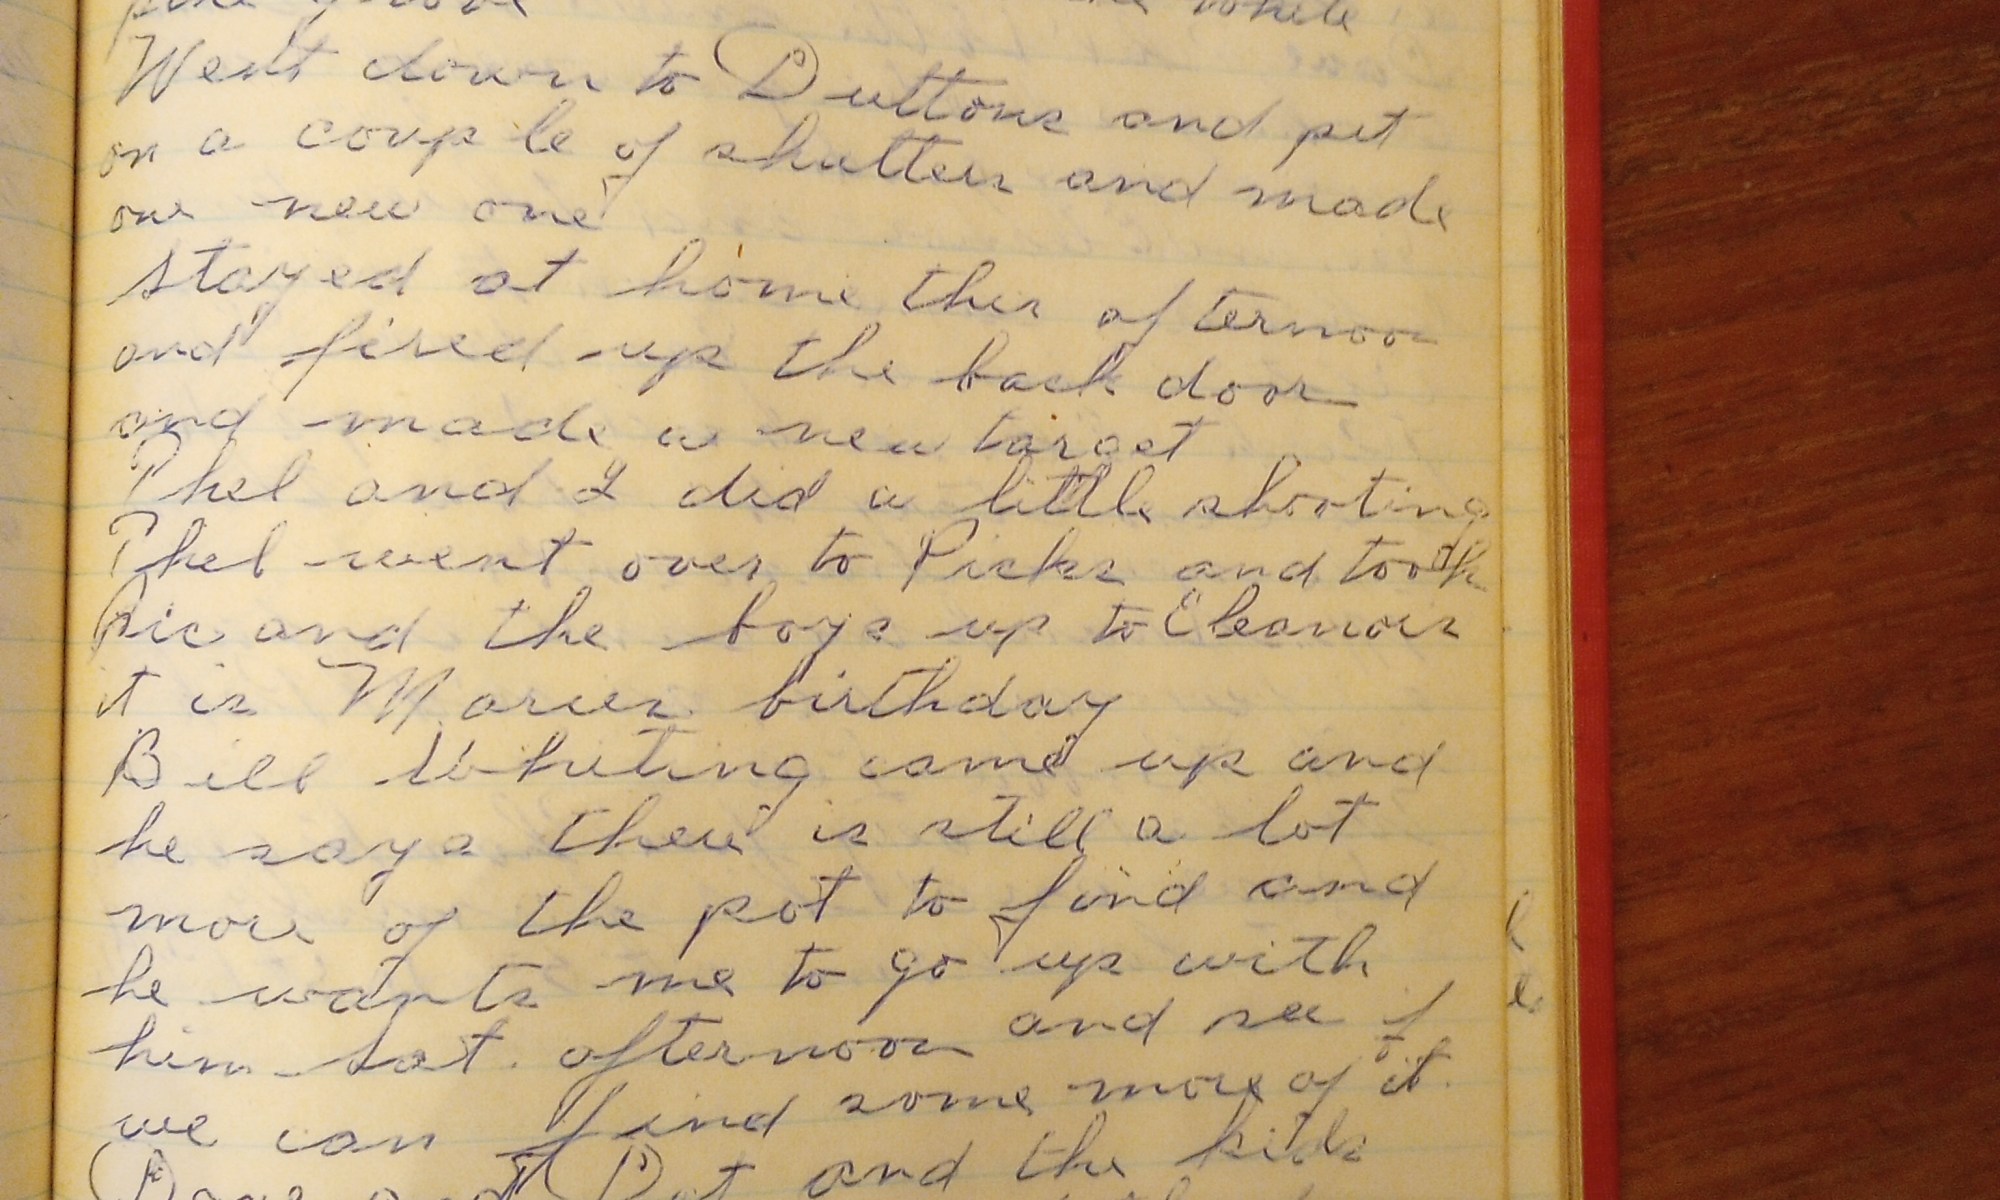 Went down to Duttons and put
on a couple of shutters and made
one new one
stayed at home this afternoon
and fired up the back door
and made a new target
Phel and I did a little shooting
Phel went over to Picks and took
Pic and the boys up to Eleanors
it is Maries birthday
Bill Whiting came up and
he says there is still a lot
more of the pot to find and
he wants me to go up with
him Sat. afternoon and see if
we can find some more of it.
and Dot and the kids